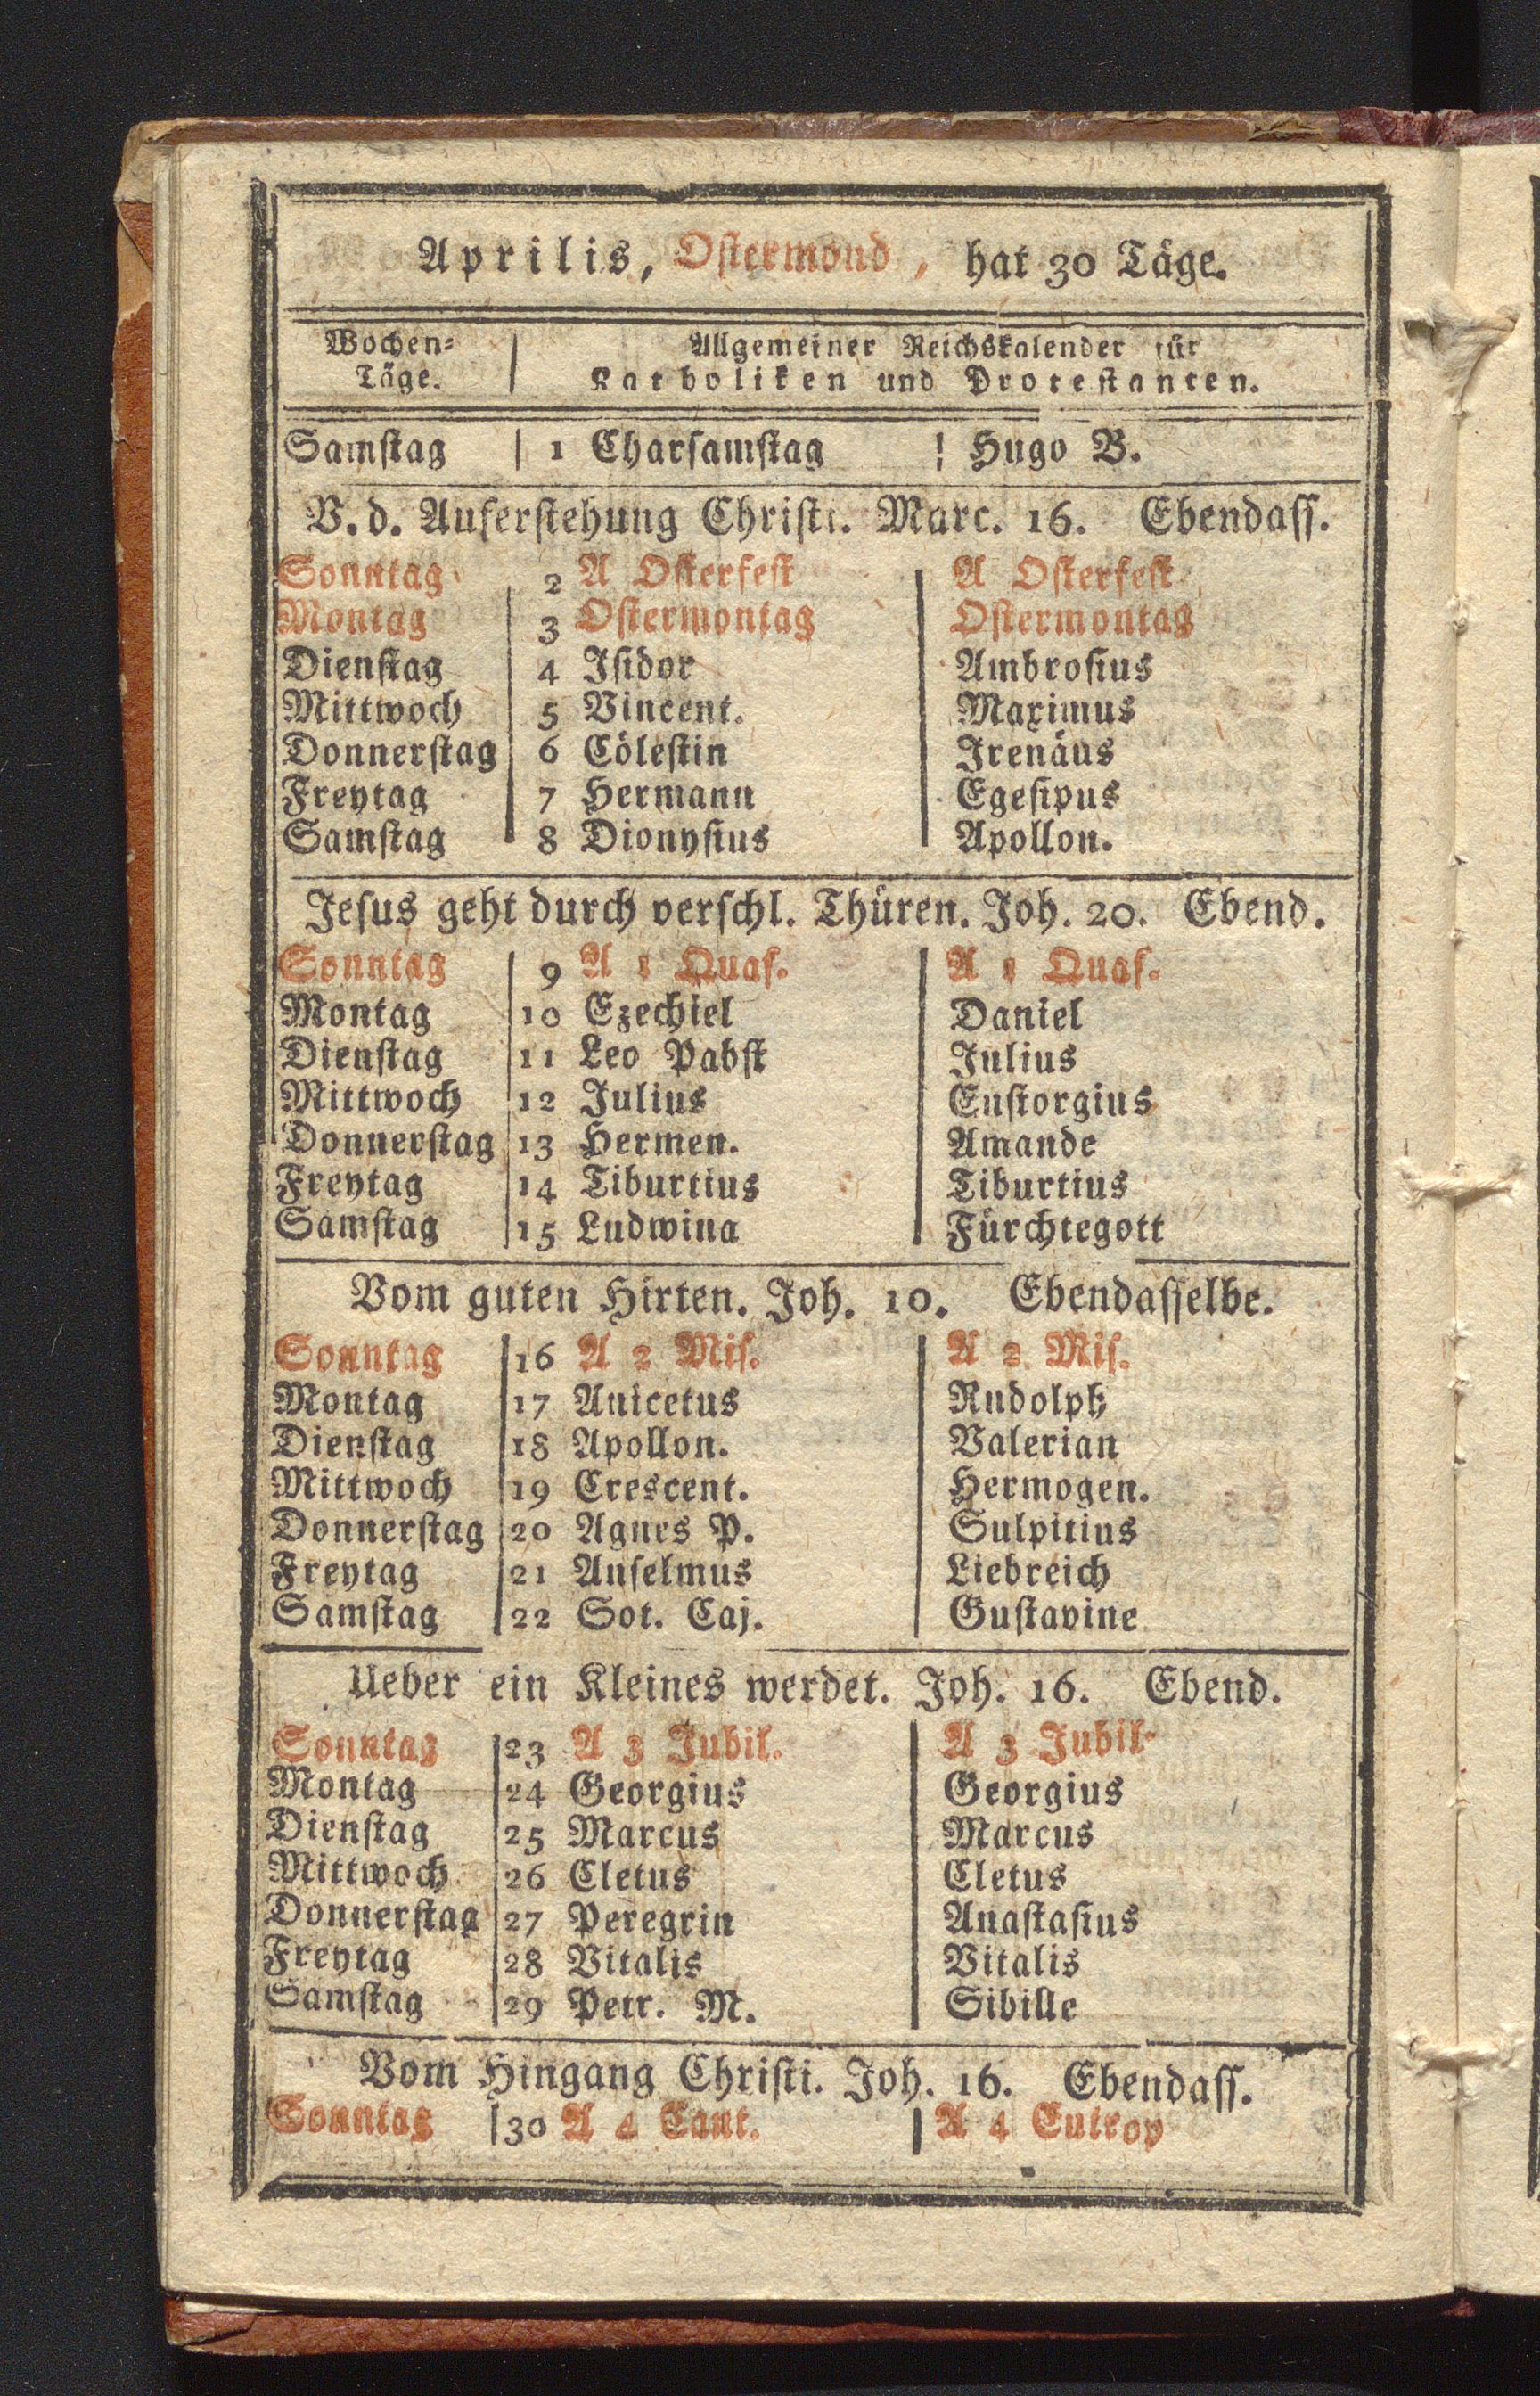 Aprilis, Ostermond, hat 30 Täge.
Wochen= Allgemeiner Reichskalender für
Täge. Katholiken und Protestanten.
Samstag | 1 Charsamstag | Hugo B.
V. d. Auferstehung Christi. Marc. 16. Ebendass.
Sonntag 2 A Osterfest A Osterfest
Montag 3 Ostermontag Ostermontag
Dienstag 4 Isidor Ambrosius
Mittwoch 5 Vincent. Maximus
Donnerstag 6 Cölestin Irenäus
Freytag 7 Hermann Egesipus
Samstag 8 Dionysius Apollon.
Jesus geht durch verschl. Thüren. Joh. 20. Ebend.
Sonntag 9 A 1 Quas. A 1 Quas.
Montag 10 Ezechiel Daniel
Dienstag 11 Leo Pabst Julius
Mittwoch 12 Julius Eustorgius
Donnerstag 13 Hermen. Amande
Freytag 14 Tiburtius Tiburtius
Samstag 15 Ludwina Fürchtegott
Vom guten Hirten. Joh. 10. Ebendasselbe.
Sonntag 16 A 2 Mis. A 2 Mis.
Montag 17 Anicetus Rudolph
Dienstag 18 Apollon. Valerian
Mittwoch 19 Crescent. Hermogen.
Donnerstag 20 Agnes P. Sulpitius
Freytag 21 Anselmus Liebreich
Samstag 22 Sot. Caj. Gustavine
Ueber ein Kleines werdet. Joh. 16. Ebend.
Sonntag 23 A 3 Jubil. A 3 Jubil.
Montag 24 Georgius Georgius
Dienstag 25 Marcus Marcus
Mittwoch 26 Cletus Cletus
Donnerstag 27 Peregrin Anastasius
Freytag 28 Vitalis Vitalis
Samstag 29 Petr. M. Sibille
Vom Hingang Christi. Joh. 16. Ebendass.
Sonntag 30 A 4 Cant. A 4 Eutrop